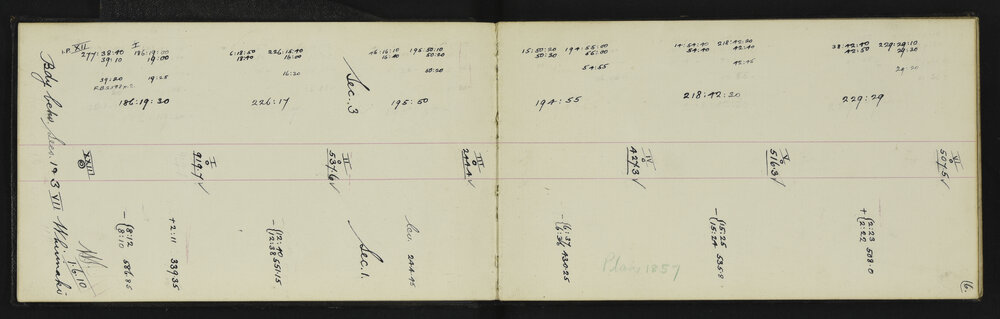 Bdy betw Secs. 1 & 3 VII Whirinaki
1.6.10
XII I
277:38:40 186:19:00
39:10 19:00
39:20 19:25
186:19:30
6:18:50 226:16:40
18:40 16:00
16:30
226:17
46:16:10 195:50:10
16:40 50:20
50:20
195:50
Sec. 3
XXIII
I
919.7 ✓
II
537.6 ✓
III
244.4 ✓
- { 8:12
8:10 586.85
+ 2:11 339.35
- { 12:40
12:38 551.15
Sec. 1.
lev. 244.45
15:50:20 194:55:00
50:20 55:00
54:55
194:55
14:54:40 218:42:20
54:40 42:40
42:45
218:42:30
38:42:40 229:29:10
42:50 29:20
29:20
229:29
IV
427.3 ✓
V
516.3 ✓
VI
507.5 ✓
- { 6:37
6:36 430.25
- { 15:25
15:24 535.8
+ { 2:23
2:22 508.0
Plan 1857
16.